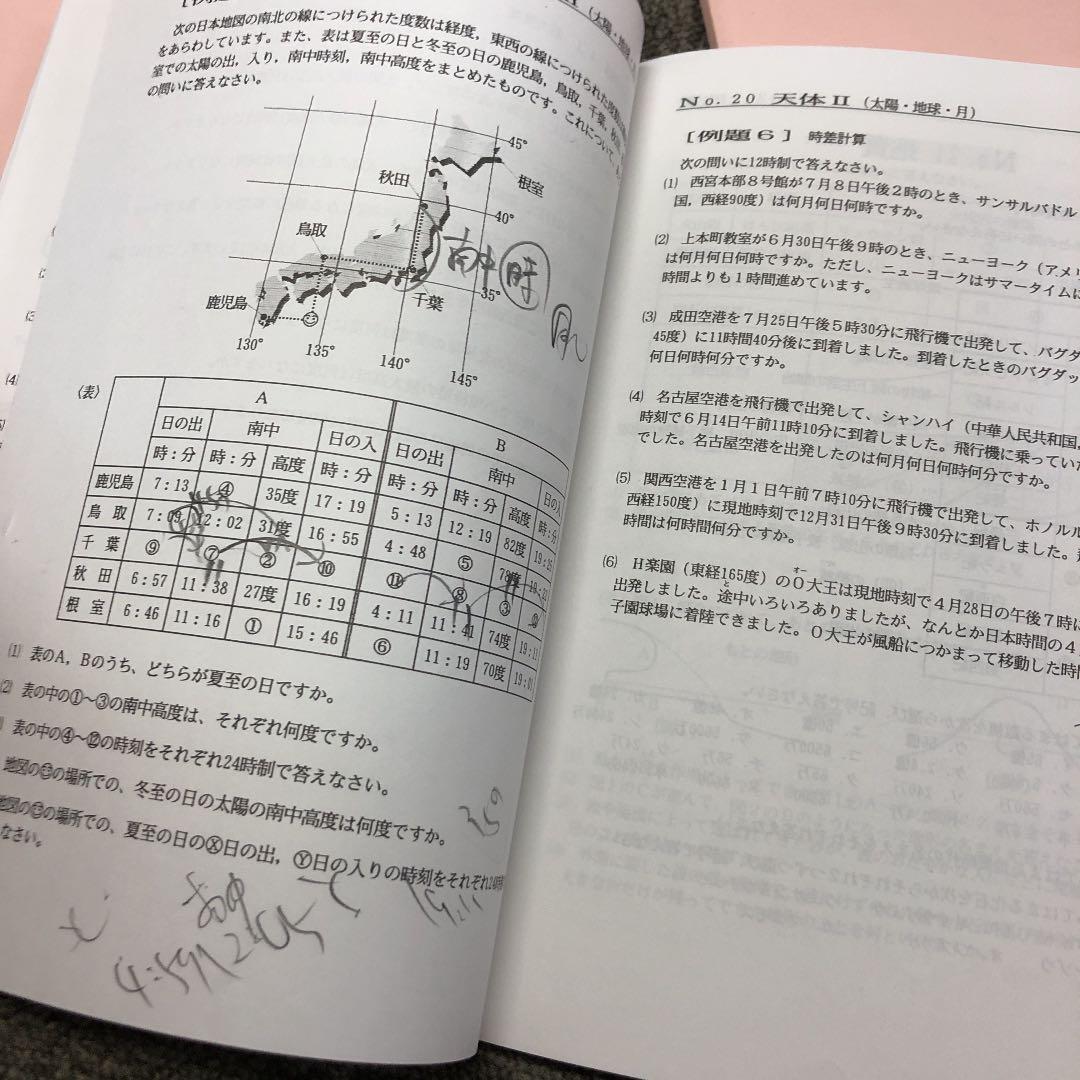 (太陽・地球
次の日本地図の南北の線につけられた度数は経度，東西の線につけられた度数は
をあらわしています。また，表は夏至の日と冬至の日の鹿児島，鳥取，千葉，
室での太陽の出，入り，南中時刻，南中高度をまとめたものです。これについて，
の問いに答えなさい。
45°
根室
秋田
40°
鳥取
南中 時
35°
千葉
鹿児島
130°
135°
140°
145°
(表)
A B
日の出 南中 日の入 日の出 南中 日の入
時：分 時：分 高度 時：分 時：分 時：分 高度 時：分
鹿児島 7：13 ④ 35度 17：19 5：13 12：19 82度
鳥取 7：09 12：02 31度 16：55 4：48 ⑤ 78度
千葉 ⑨ ⑦ ② ⑩ ⑪ ⑧ ③ ⑫
秋田 6：57 11：38 27度 16：19 4：11 11：41 74度 19：11
根室 6：46 11：16 ① 15：46 ⑥ 11：19 70度 19：01
(1) 表のA，Bのうち，どちらが夏至の日ですか。
(2) 表の中の①～③の南中高度は、それぞれ何度ですか。
表の中の④～⑫の時刻をそれぞれ24時制で答えなさい。
地図の☺の場所での、冬至の日の太陽の南中高度は何度ですか。
地図の☺の場所での、夏至の日のⓍ日の出，Ⓨ日の入りの時刻をそれぞれ24時
なさい。
No. 20 天体Ⅱ (太陽・地球・月)
[例題6] 時差計算
次の問いに12時制で答えなさい。
(1) 西宮本部8号館が7月8日午後2時のとき、サンサルバドル
国，西経90度）は何月何日何時ですか。
(2) 上本町教室が6月30日午後9時のとき、ニューヨーク（アメリ
は何月何日何時ですか。ただし、ニューヨークはサマータイムに
時間よりも1時間進めています。
(3) 成田空港を7月25日午後5時30分に飛行機で出発して、バグダ
45度）に11時間40分後に到着しました。到着したときのバグダッ
何日何時何分ですか。
(4) 名古屋空港を飛行機で出発して、シャンハイ（中華人民共和国，
時刻で6月14日午前11時10分に到着しました。飛行機に乗ってい
でした。名古屋空港を出発したのは何月何日何時何分ですか。
(5) 関西空港を1月1日午前7時10分に飛行機で出発して、ホノルル
西経150度）に現地時刻で12月31日午後9時30分に到着しました。
時間は何時間何分ですか。
(6) H楽園（東経165度）のO大王は現地時刻で4月28日の午後7時に
出発しました。途中いろいろありましたが、なんとか日本時間の4
子園球場に着陸できました。O大王が風船につかまって移動した時間